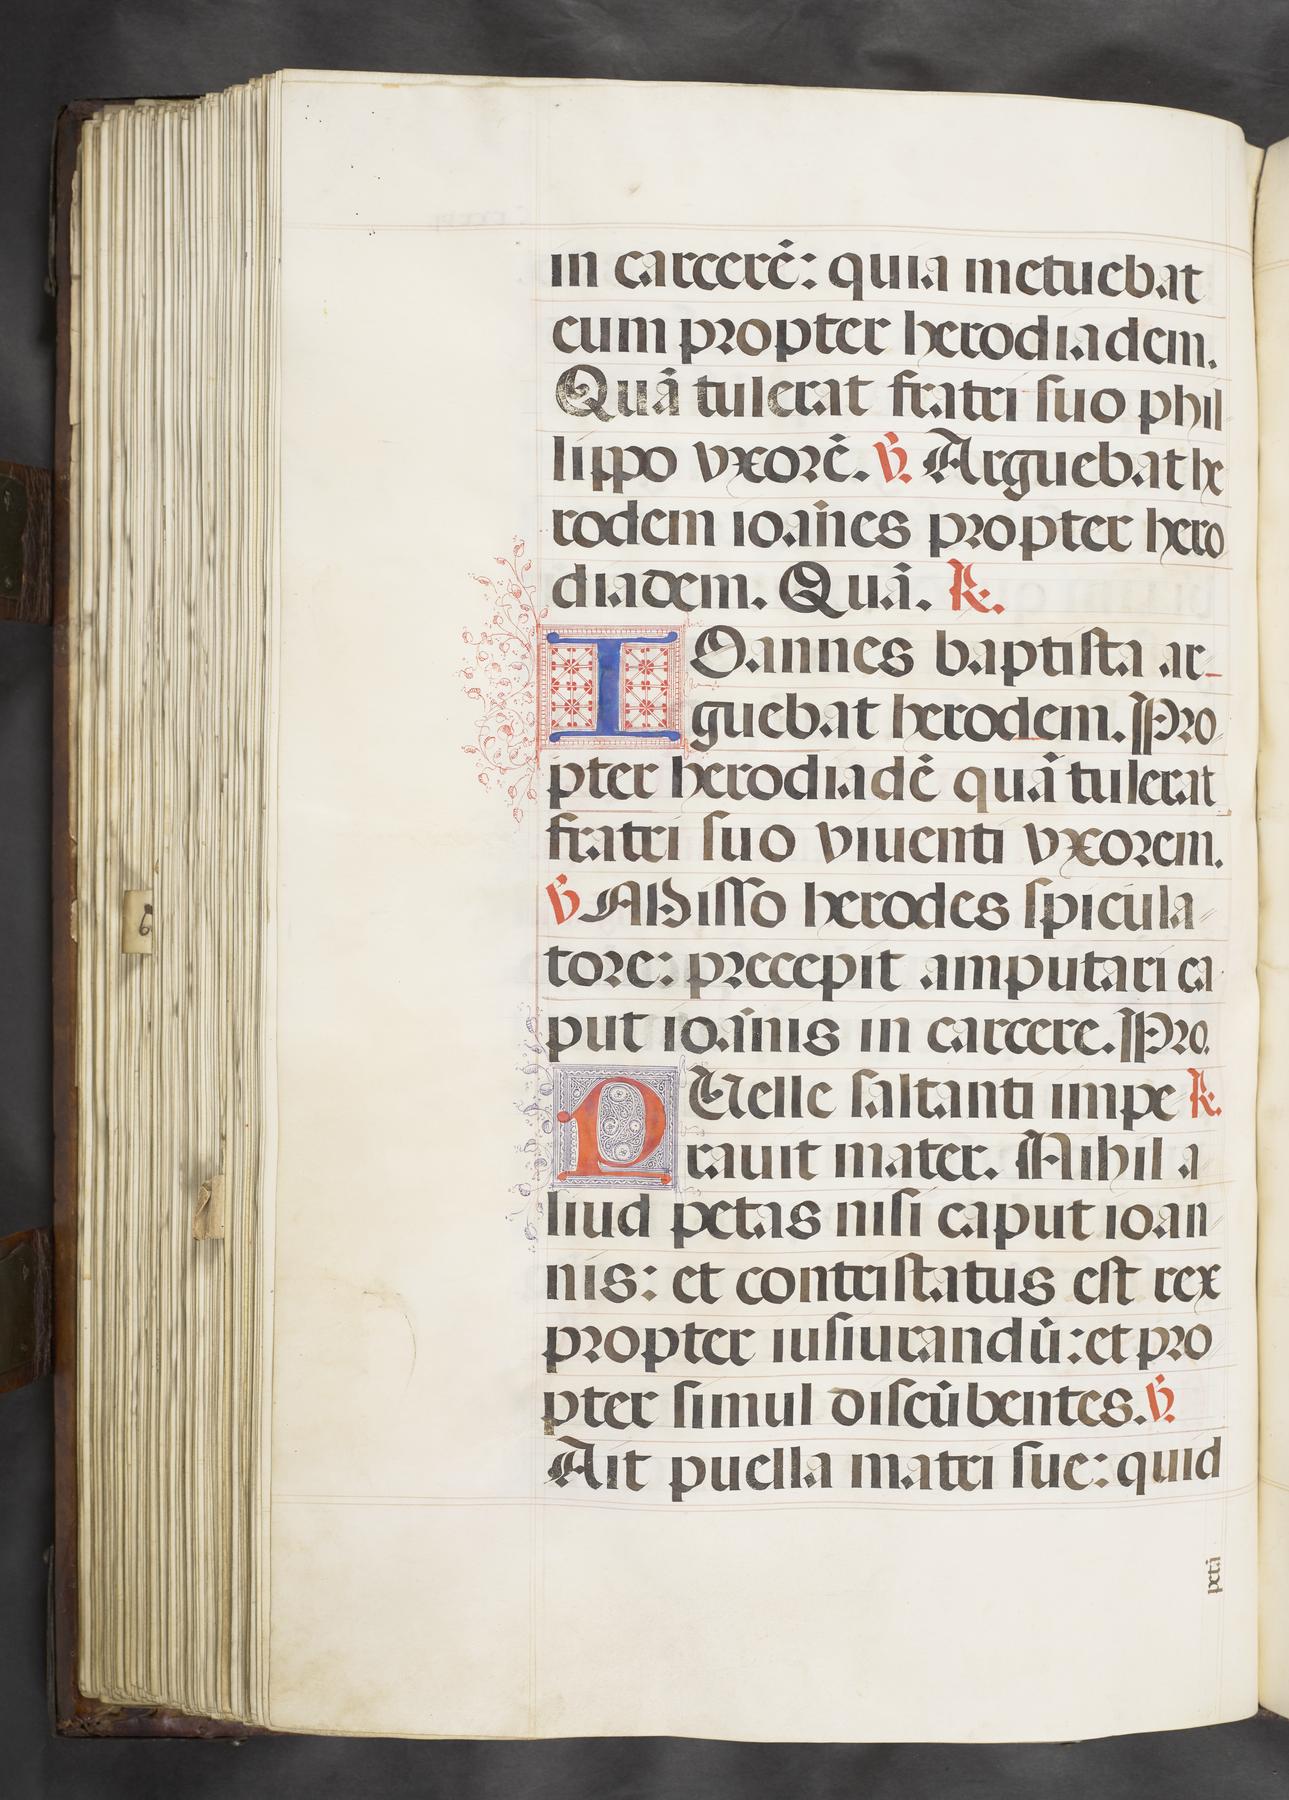 in carcerē: quia metuebat
eum propter herodiadem.
Quā tulerat fratri suo phil
lippo vxorē. ℣. Arguebat he
rodem ioānes propter hero
diadem. Quā. ℟.
IOannes baptista ar-
guebat herodem. Pro
pter herodiadē quā tulerat
fratri suo viuenti vxorem.
℣ Misso herodes spicula
tore: precepit amputari ca
put ioānis in carcere. Pro.
PUelle saltanti impe ℟.
rauit mater. Nihil a
liud petas nisi caput ioan
nis: et contristatus est rex
propter iusiurandū: et pro
pter simul discūbentes. ℣.
Ait puella matri sue: quid
petā
6